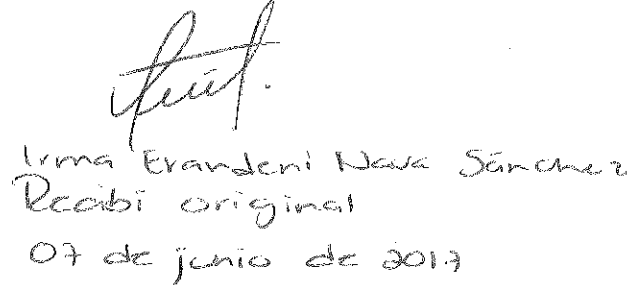 Irma Erandeni Nava Sánchez
Recibí original
07 de junio de 2017